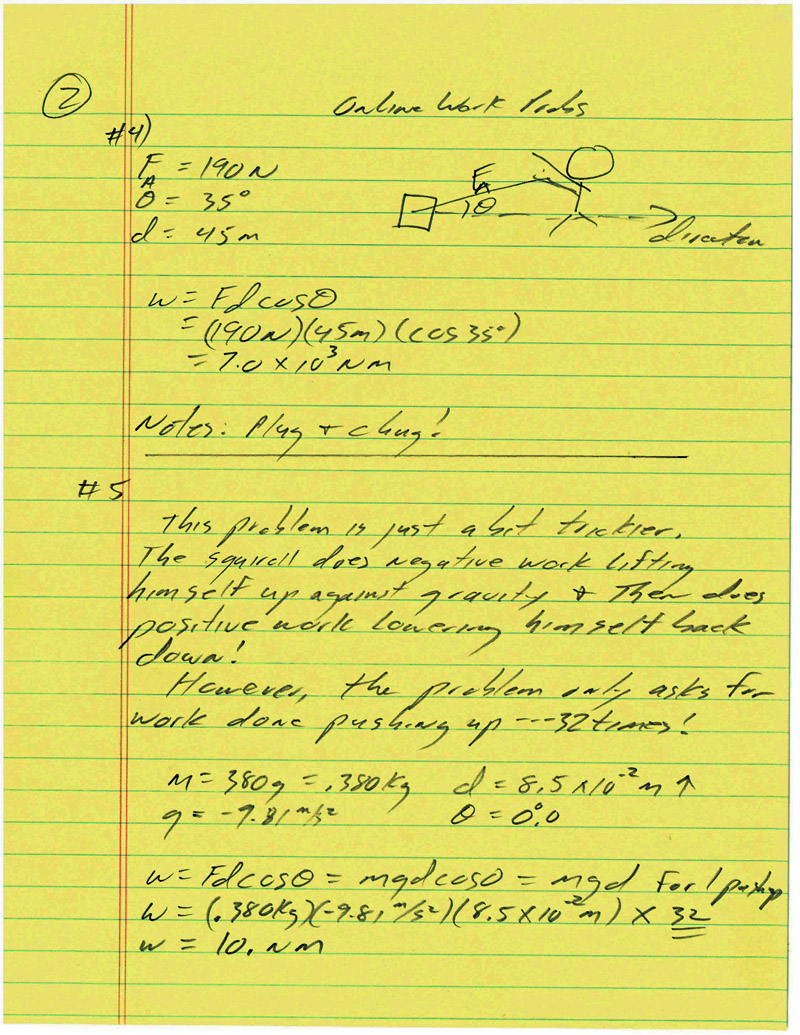 ②
Online Work Probs
#4)
F_A = 190N
θ = 35°
d = 45m
F_A
θ
direction
W = Fdcosθ
= (190N)(45m)(cos35°)
= 7.0 x 10³ Nm
Notes: Plug + chug!
#5
This problem is just a bit trickier.
The squirell does negative work lifting
himself up against gravity + Then does
positive work lowering himself back
down!
However, the problem only asks for
work done pushing up ---32 times!
M = 380g = .380Kg d = 8.5 x10⁻² m ↑
g = -9.81 m/s² θ = 0.0°
W = Fdcosθ = mgdcosθ = mgd For 1 pushup
W = (.380Kg)(-9.81 m/s²)(8.5 x10⁻² m) x 32
W = 10. Nm